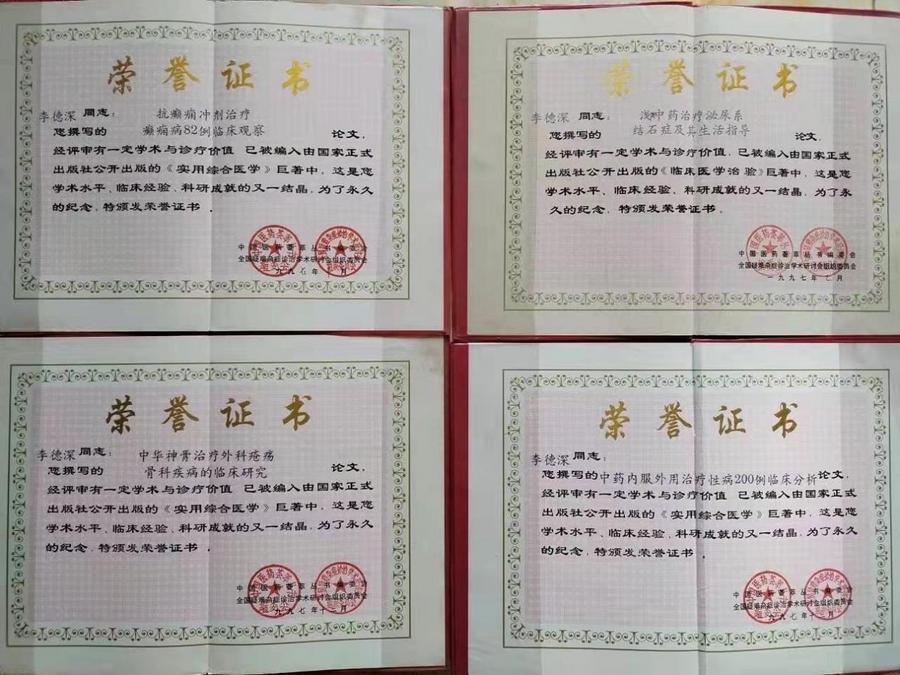 荣誉证书
李德深 同志：
抗癫痫冲剂治疗
您撰写的 癫痫病82例临床观察 论文，
经评审有一定学术与诊疗价值，已被编入由国家正式
出版社公开出版的《实用综合医学》巨著中，这是您
学术水平、临床经验、科研成就的又一结晶，为了永久
的纪念，特颁发荣誉证书。
中国医药荟萃丛书编委会
全国疑难杂症诊治学术研讨会组织委员会
一九九七年 月
荣誉证书
李德深 同志：
浅中药治疗泌尿系
您撰写的 结石症及其生活指导 论文，
经评审有一定学术与诊疗价值，已被编入由国家正式
出版社公开出版的《临床医学治验》巨著中，这是您
学术水平、临床经验、科研成就的又一结晶，为了永
久的纪念，特颁发荣誉证书。
中国医药荟萃丛书编委会
全国疑难杂症诊治学术研讨会组织委员会
一九九七年 月
荣誉证书
李德深 同志：
中华神膏治疗外科疮疡
您撰写的 骨科疾病的临床研究 论文，
经评审有一定学术与诊疗价值，已被编入由国家正式
出版社公开出版的《实用综合医学》巨著中，这是您
学术水平、临床经验、科研成就的又一结晶，为了永久
的纪念，特颁发荣誉证书。
中国医药荟萃丛书编委会
全国疑难杂症诊治学术研讨会组织委员会
一九九七年 月
荣誉证书
李德深 同志：
您撰写的中药内服外用治疗性病200例临床分析论文，
经评审有一定学术与诊疗价值，已被编入由国家正式
出版社公开出版的《实用综合医学》巨著中，这是您
学术水平、临床经验、科研成就的又一结晶，为了永久
的纪念，特颁发荣誉证书。
中国医药荟萃丛书编委会
全国疑难杂症诊治学术研讨会组织委员会
一九九七年十二月